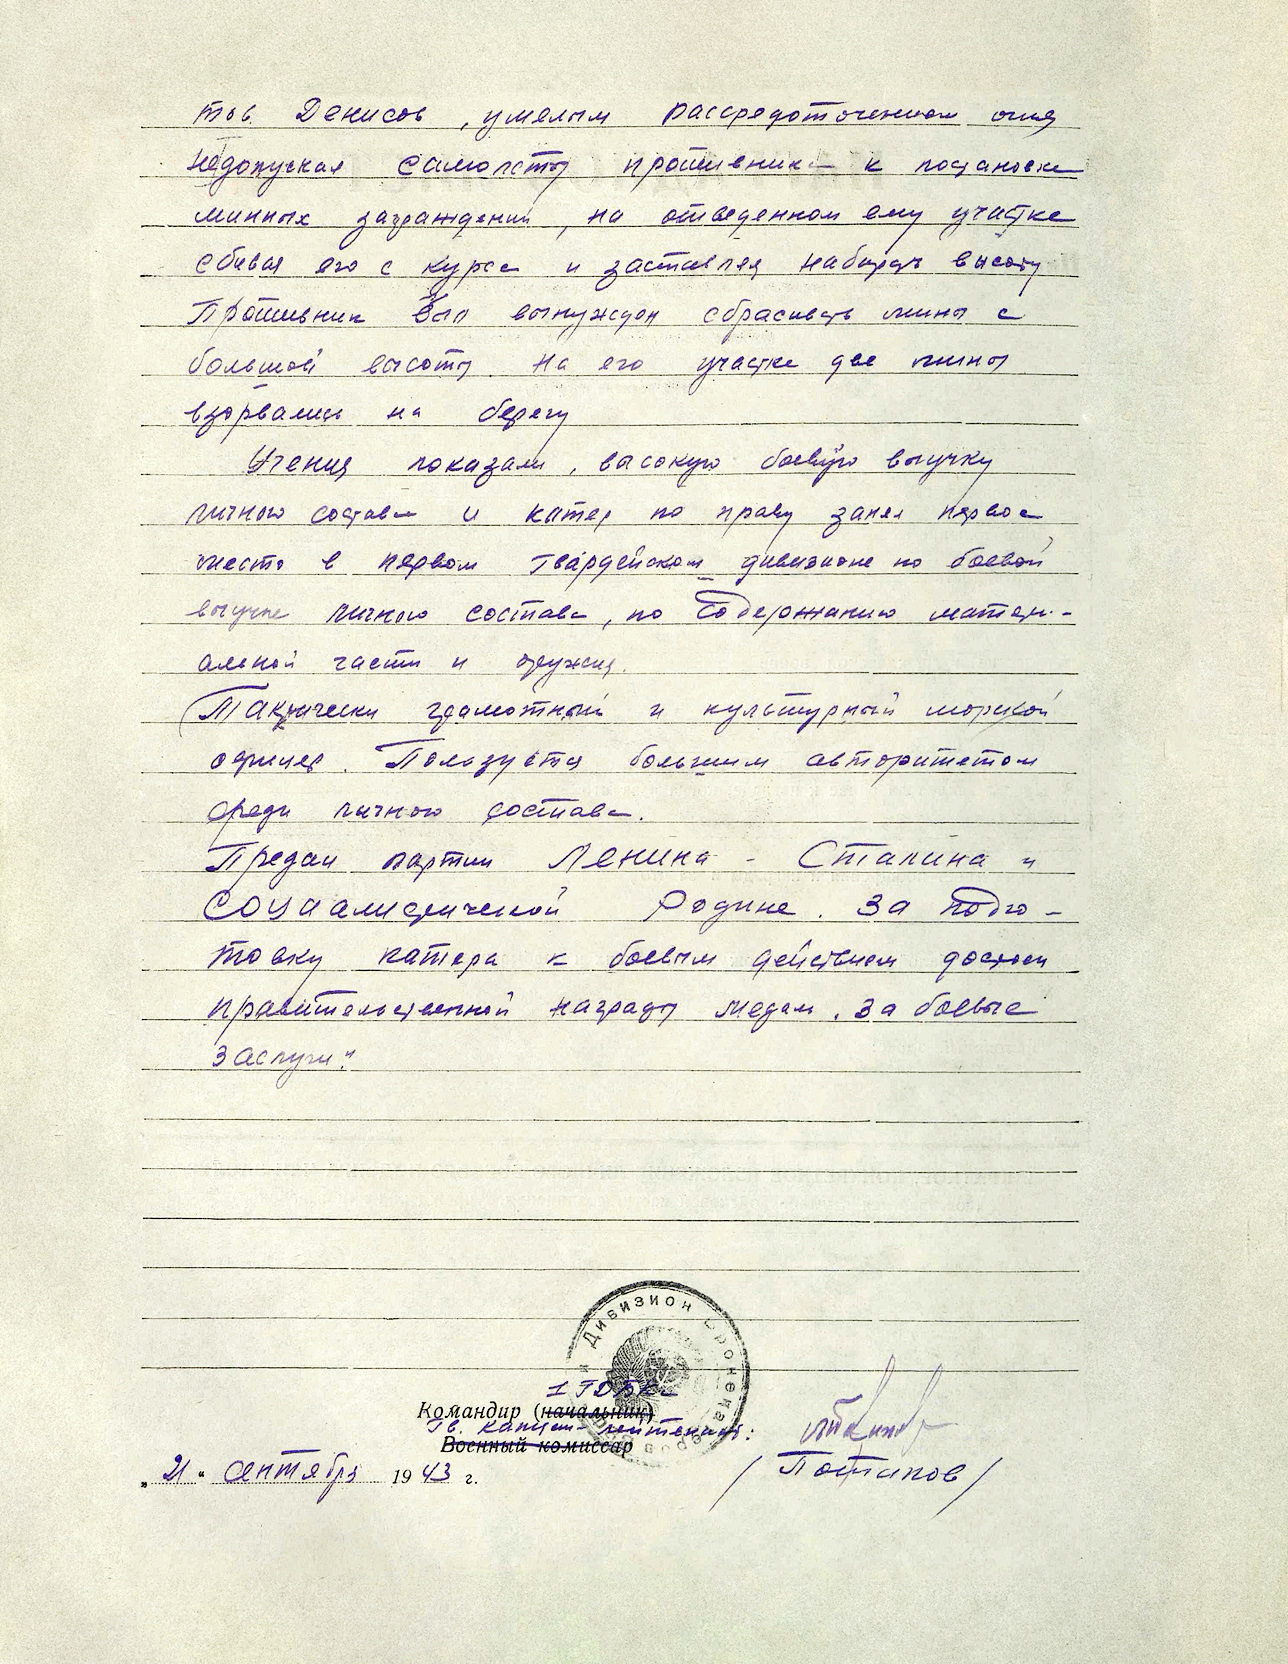 тов. Денисов, умелым рассредоточением огня
недопуская самолеты противника к постановке
минных заграждений, на отведенном ему участке
сбивая его с курса и заставляя набирать высоту
Противник был вынужден сбрасывать мины с
большой высоты. На его участке две мины
взорвались на берегу
Учения показали, высокую боевую выучку
личного состава и катер по праву занял первое
место в первом Гвардейском дивизионе по боевой
выучке личного состава, по содержанию матери-
альной части и оружия.
Тактически грамотный и культурный морской
офицер. Пользуется большим авторитетом
среди личного состава.
Предан партии Ленина - Сталина и
социалистической Родине. За подго-
товку катера к боевым действием достоен
правительственной награды медали "За боевые
заслуги".
Дивизион бронека
1 ГДБК
Командир (начальник)
Гв. капитан-лейтенант:
Военный комиссар
/Потапов/
„21“ сентября 1943 г.